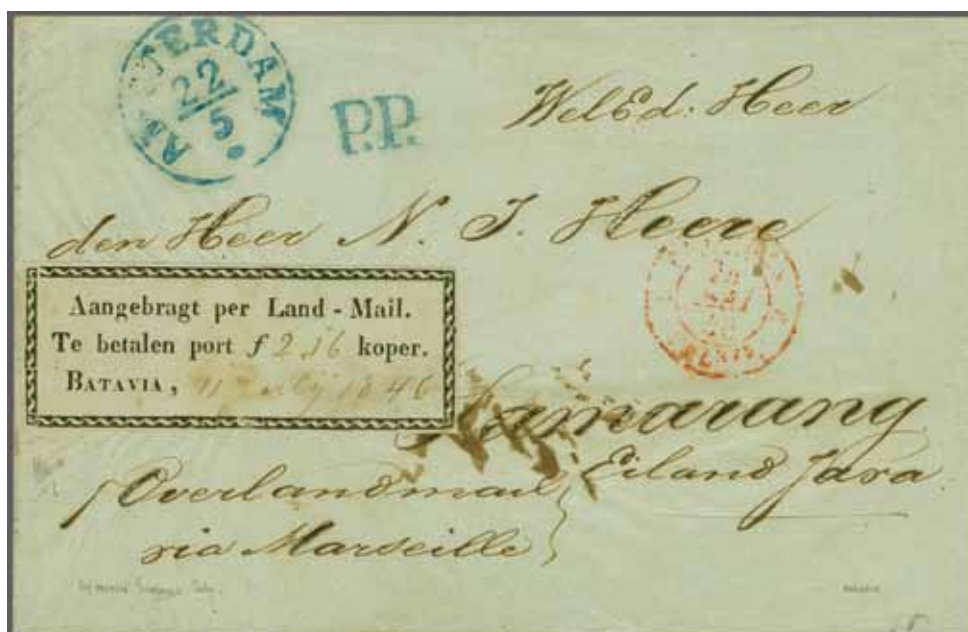 AMSTERDAM
22
5
P.P.
WelEd: Heer
den Heer N. J. Heere
Aangebragt per Land - Mail.
Te betalen port f 2,16 koper.
BATAVIA, 11 July 1846
Samarang
Eiland Java
Overlandmail
via Marseille